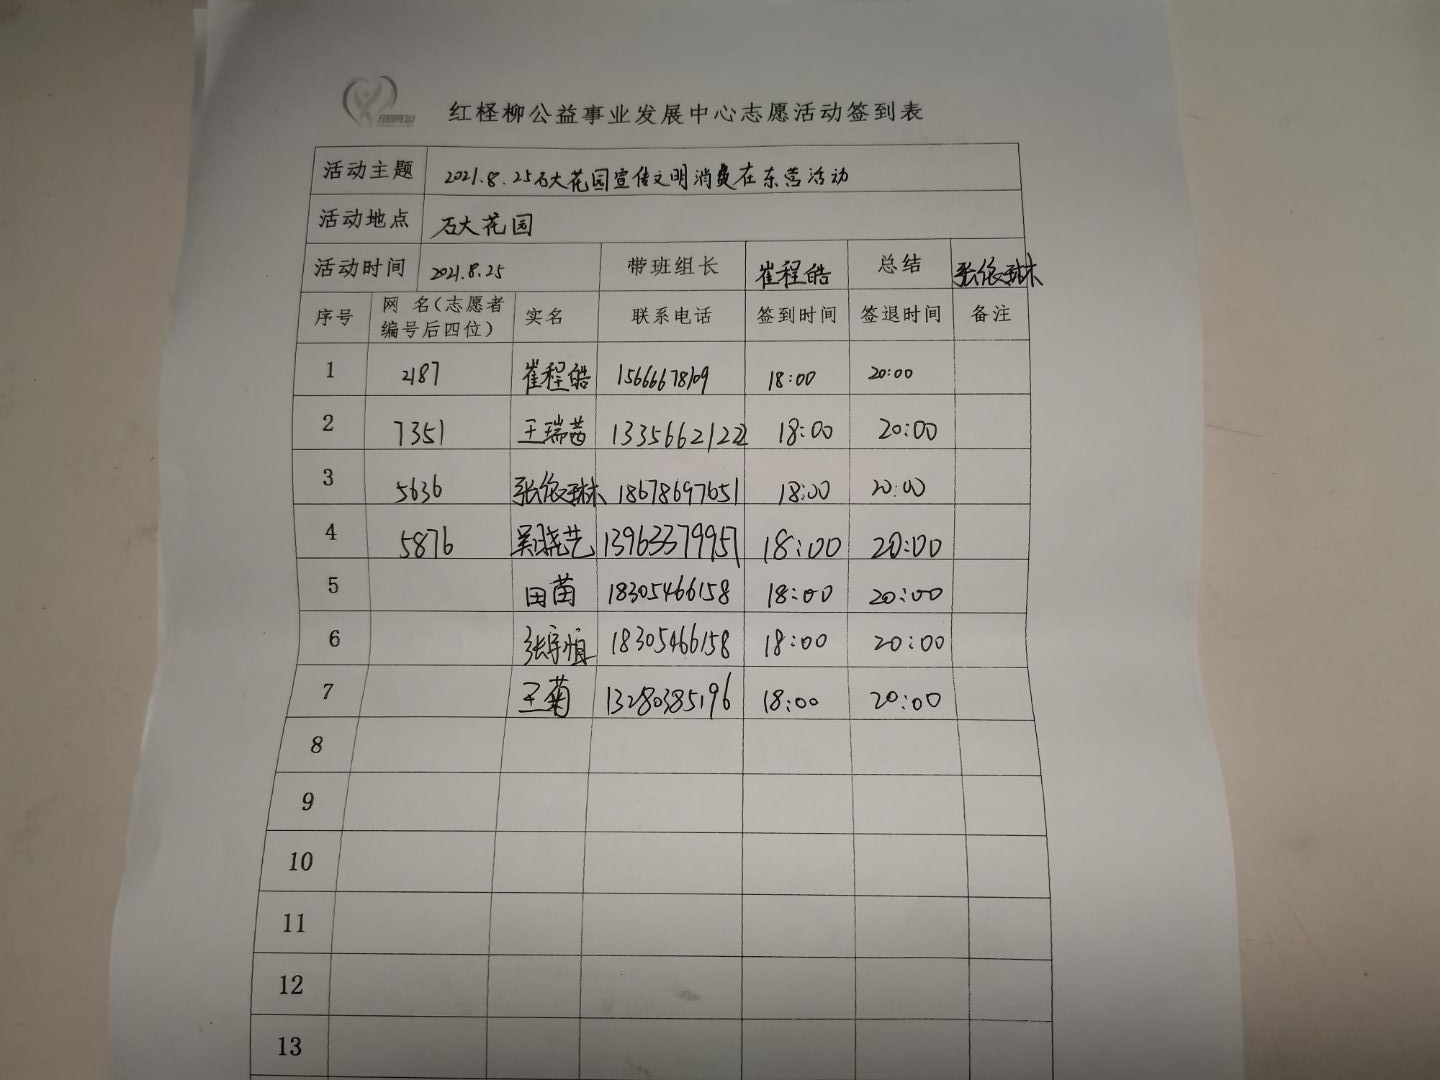 红柽柳公益事业发展中心志愿活动签到表
活动主题 2021.8.25石大花园宣传文明消费在东营活动
活动地点 石大花园
活动时间 2021.8.25 带班组长 崔程皓 总结 张依琳
序号 网 名(志愿者编号后四位) 实名 联系电话 签到时间 签退时间 备注
1 2187 崔程皓 18:00 20:00
2 7351 王瑞茜 13356621222 18:00 20:00
3 5636 张依琳 18678697651 18:00 20:00
4 5876 吴晓艺 13963379957 18:00 20:00
5 田苗 18305466158 18:00 20:00
6 张宇恒 18305466158 18:00 20:00
7 王菊 13280385196 18:00 20:00
8
9
10
11
12
13